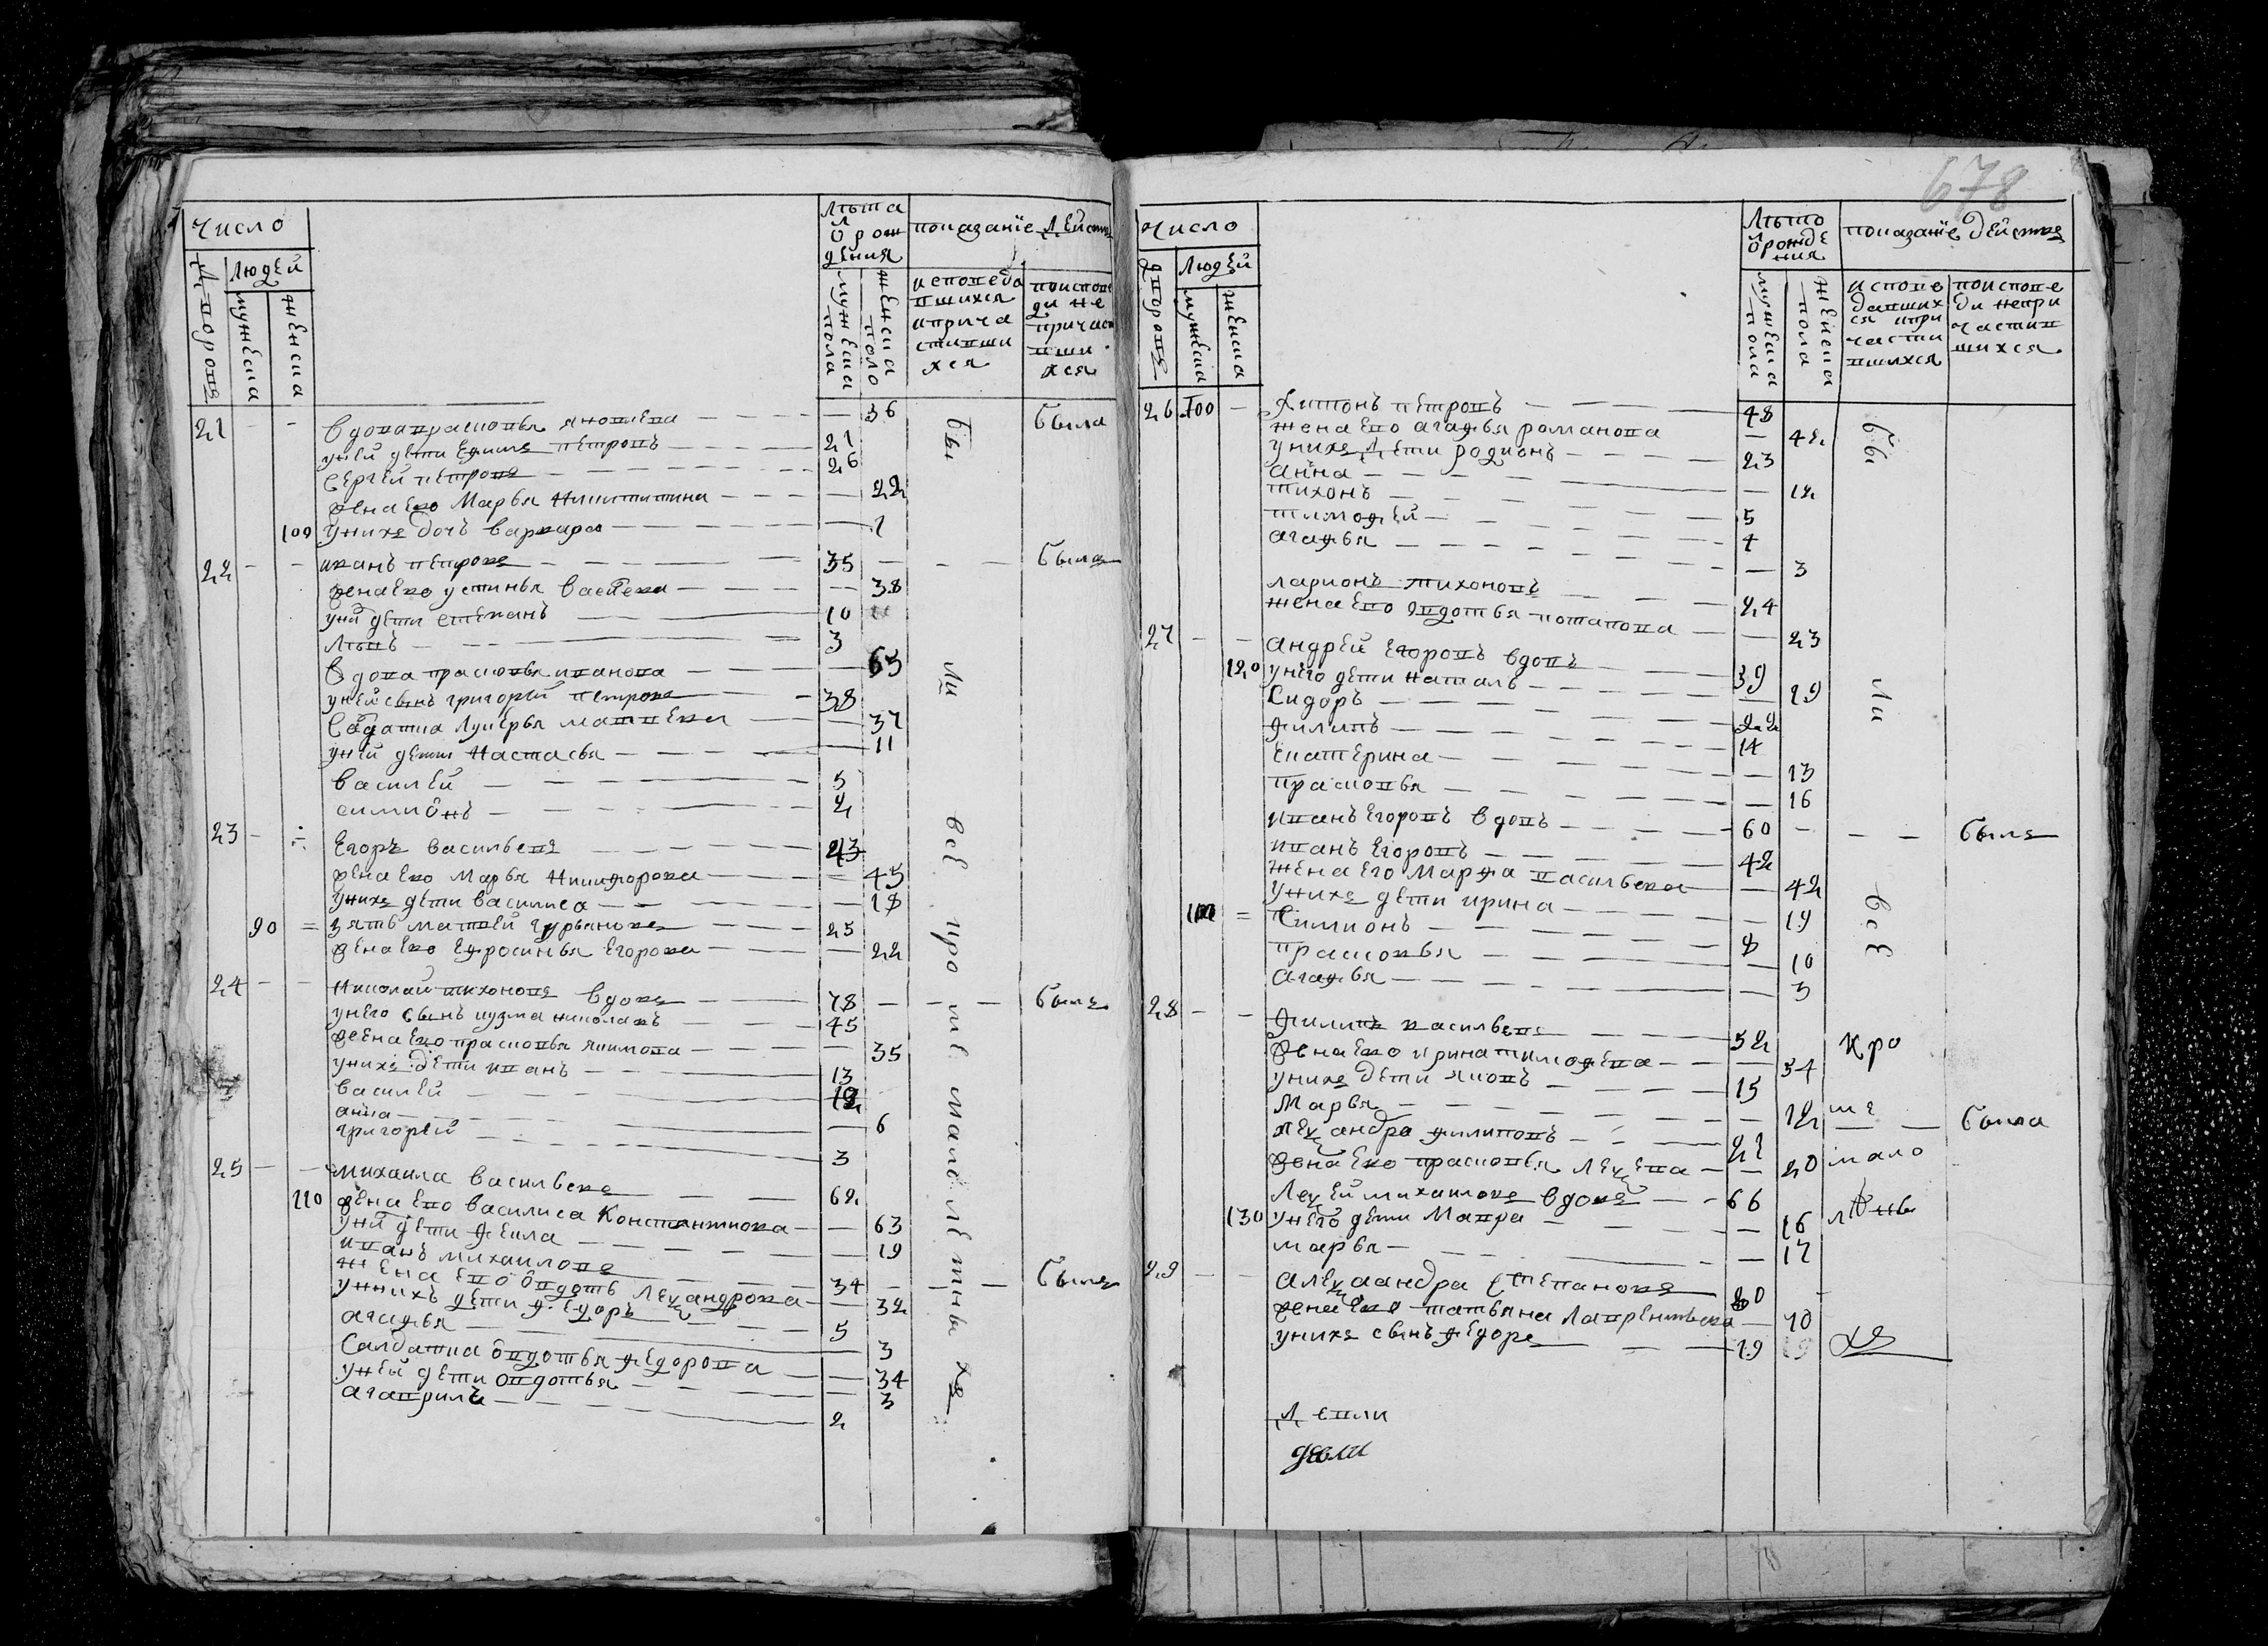 число
людей
дворовъ
мужеска
женска
лѣта
ѿ рож
дения
мужеска пола
женска поло
показание дейст
исповеда
вшихся
иприча
стивши
хся
поиспове
ди не
причас
ивши
хся
21 - - вдова прасковья яковлева — 36 была
уней дети Ефимъ петровъ 21
сергей петровъ 26
жена ево Марья Никитична — 22
100 унихъ дочь варвара — 1
22 - - иванъ петровъ 35 — была
жена ево устинья васлева — 38
уний дети степанъ 10
лѣвъ 3
вдова прасковья иванова — 65
уней сынъ григорий петровъ 38
Солдатка лукерья матвева — 37
уней дети Настасья — 11
василей 5
симионъ 2
23 - Егоръ васильевъ 43
жена ево марья Никифорова — 45
унихъ дети василиса — 18
90 = зять матвей гурьяновъ 25
жена ево Ефросинья Егорова — 22
24 - - Николай тихоновъ вдовъ 78 — былъ
унего сынъ кузма николаевъ 45
жена ево прасковья якимова — 35
унихъ дети иванъ 13
василей 12
анна — 6
григорей 3
25 - - михаила васильевъ 62
110 жена ево василиса Константинова — 63
уний дети фекла — 19
иванъ михаиловъ 34 — былъ
жена ево овдоть Леѯандрова — 32
унихъ дети федоръ 5
агафья — 3
Салдатка овдотья федорова — 34
уней дети овдотья — 3
гаврилъ 2
бы
ли
всЕ
кро
ме
малолетны
хъ
678
число
дворовъ
людей
мужеска
женска
Лѣто
ѿ рожде
ния
мужеска пола
женска пола
показание действе
испове
давших
ся ипри
части
вшихся
поиспове
ди непри
частив
шихся
26 100 - Антонъ петровъ 48
жена ево агафья романова — 42
унихъ дети родионъ 23
анна — 12
тихонъ 5
тимофей 4
агафья — 3
ларионъ тихоновъ 24
жена ево овдотья потапова — 23
27 - - андрей Егоровъ вдовъ 39
120 унего дети наталь — 19
Сидоръ 22
филипъ 14
екатерина — 13
прасковья — 16
иванъ Егоровъ вдовъ 60 — былъ
иванъ Егоровъ 42
жена его марфа васильева — 42
унихъ дети ирина — 19
Симионъ 8
прасковья — 10
агафья — 3
28 - - филипъ васильевъ 52
жена ево ирина тимофева — 54
унихъ дети яковъ 15
марья — 12 — была
Леѯандра филиповъ 21
жена ево прасковья Леѯева — 20
Леѯей михаиловъ вдовъ 66
130 унего дети мавра — 16
марья — 12
29 - - алеѯаандра степановъ 80
жена ево татьяна лаврентьева — 70
унихъ сынъ федоръ 19
бы
ли
всЕ
кро
мѣ
мало
лѣтны
хъ